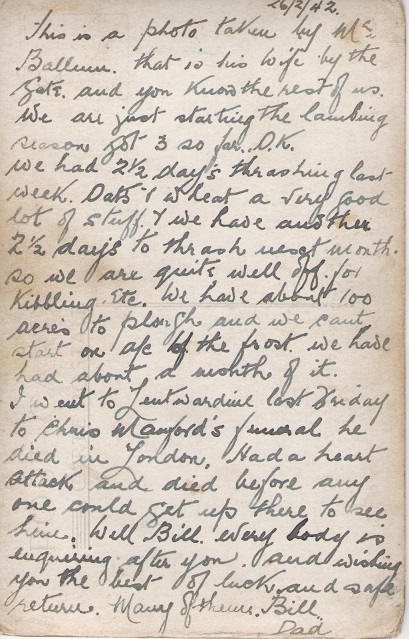 26/2/42.
This is a photo taken by Mr.
that is his wife by the
Gate. and you know the rest of us.
We are just starting the lambing
season got 3 so far. O.K.
we had 2½ day's thrashing last
week. Oats & wheat a very good
lot of stuff & we have another
2½ days to thrash next month.
so we are quite well off for
Kibbling. Etc. We have about 100
acres to plough and we cant
start on a/c of the frost. we have
had about a month of it.
I went to Leintwardine last Friday
to Chris funeral he
died in London. Had a heart
attack and died before any
one could get up there to see
him. Well Bill. every body is
enquiring after you. and wishing
you the best of luck and safe
return. Many of them. Bill
Dad